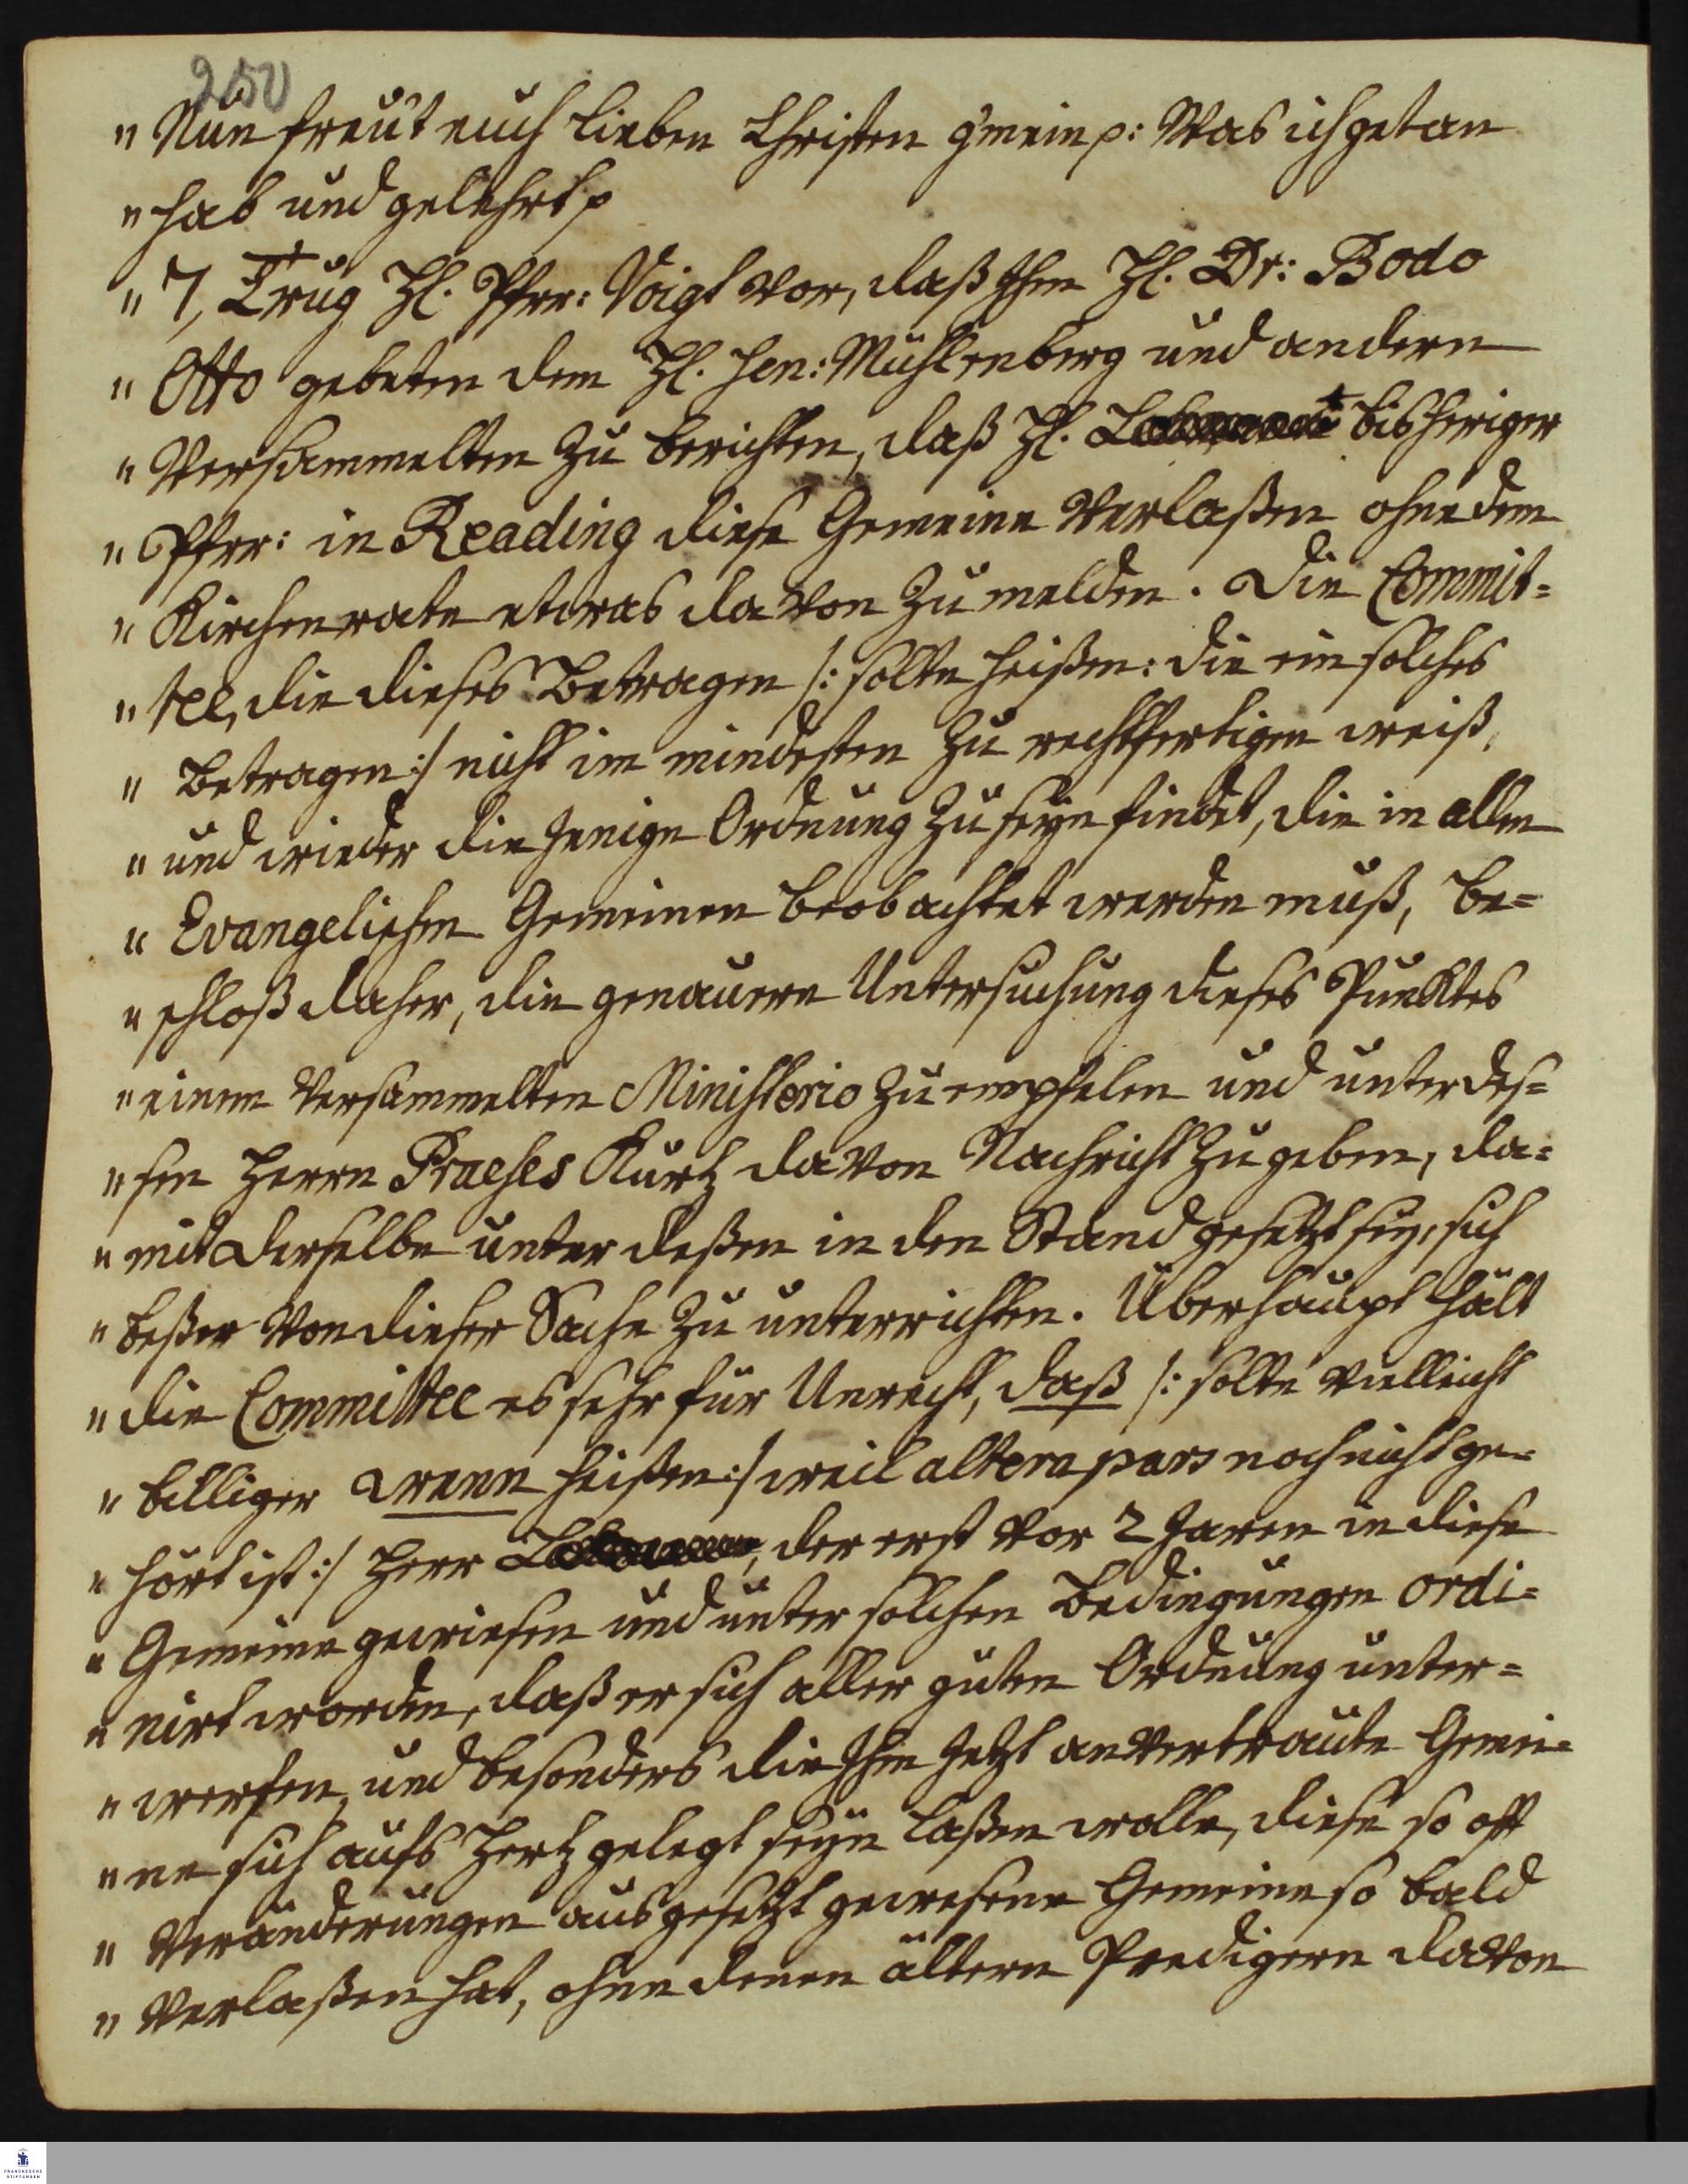 250
" Nun freut euch lieben Christen g'mein p: Was ich getan
" hab und gelehrt p
" 7, Trug H. Pfrr: Voigt vor, daß Ihn H. Dr: Bodo
" Otto gebeten dem H. Hen: Mühlenberg und andern
" Versammelten zu berichten, daß H. bisheriger
" Pfrr: in Reading diese Gemeine verlaßen ohne dem
" Kirchenrate etwas davon zu melden. Die Commit=
" tee, die dieses Betragen /: solte heißen: die ein solches
" Betragen :/ nicht im mindesten zu rechtfertigen weiß,
" und wieder die Jenige Ordnung zu seyn findet, die in allen
" Evangelischen Gemeinen beobachtet werden muß, be=
" schloß daher, die genauere Untersuchung dieses Punktes
" einem Versammelten Ministerio zu empfelen und unterdes=
" sen Herrn Praeses Kurtz davon Nachricht zu geben, da=
" mit derselbe unter deßen in den Stand gesetzt sey, sich
" beßer von dieser Sache zu unterrichten. Überhaupt hält
" die Committee es sehr für Unrecht, daß /: solte vielleicht
" billiger wenn heißen :/ weil altera pars noch nicht ge=
" hört ist :/ Herr , der erst vor 2 Jaren in diese
" Gemeine gewiesen und unter solchen Bedingungen ordi=
" nirt worden, daß er sich aller guten Ordnung unter=
" werfen, und besonders die Ihm Jetzt anvertraute Gemei=
" ne sich aufs Hertz gelegt seyn laßen wolle, diese so oft
" Veränderungen ausgesetzt gewesene Gemeine so bald
" verlaßen hat, ohne denen ältern Predigern davon
FRANCKESCHE
STIFTUNGEN